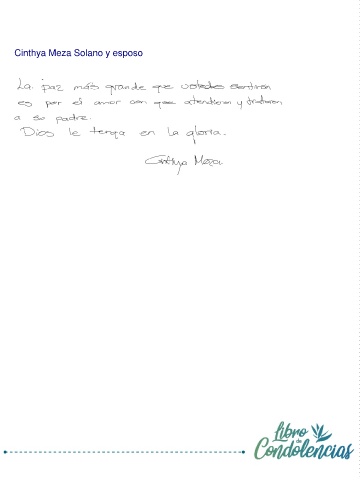 Cinthya Meza Solano y esposo
La paz más grande que ustedes sentirán
es por el amor con que atendieron y trataron
a su padre.
Dios le tenga en la gloria.
Cinthya Meza
Libro de
Condolencias